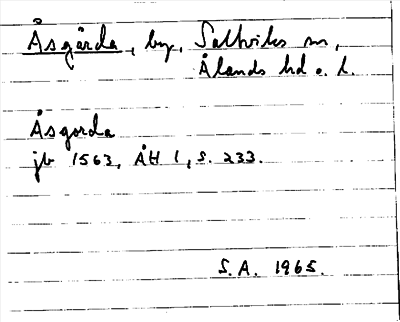 Åsgärda, by, Saltviks sn,
Ålands hd o. l.
Åsgorda
jb 1563, ÅH 1, s. 233.
S.A. 1965.